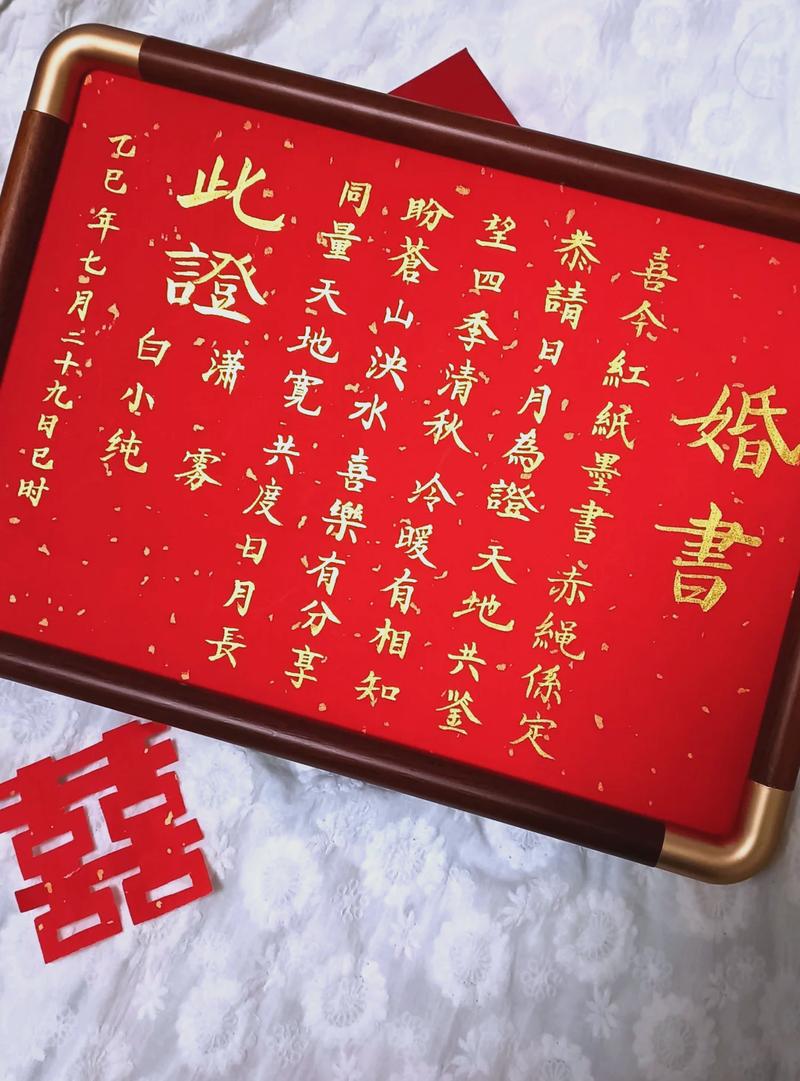 婚書
喜今紅紙墨書 赤繩係定
恭請日月為證 天地共鉴
望四季清秋 冷暖有相知
盼蒼山泱水 喜樂有分享
同量天地寬 共度日月長
此證
潇雾
白小纯
乙巳年七月二十九日巳时
囍